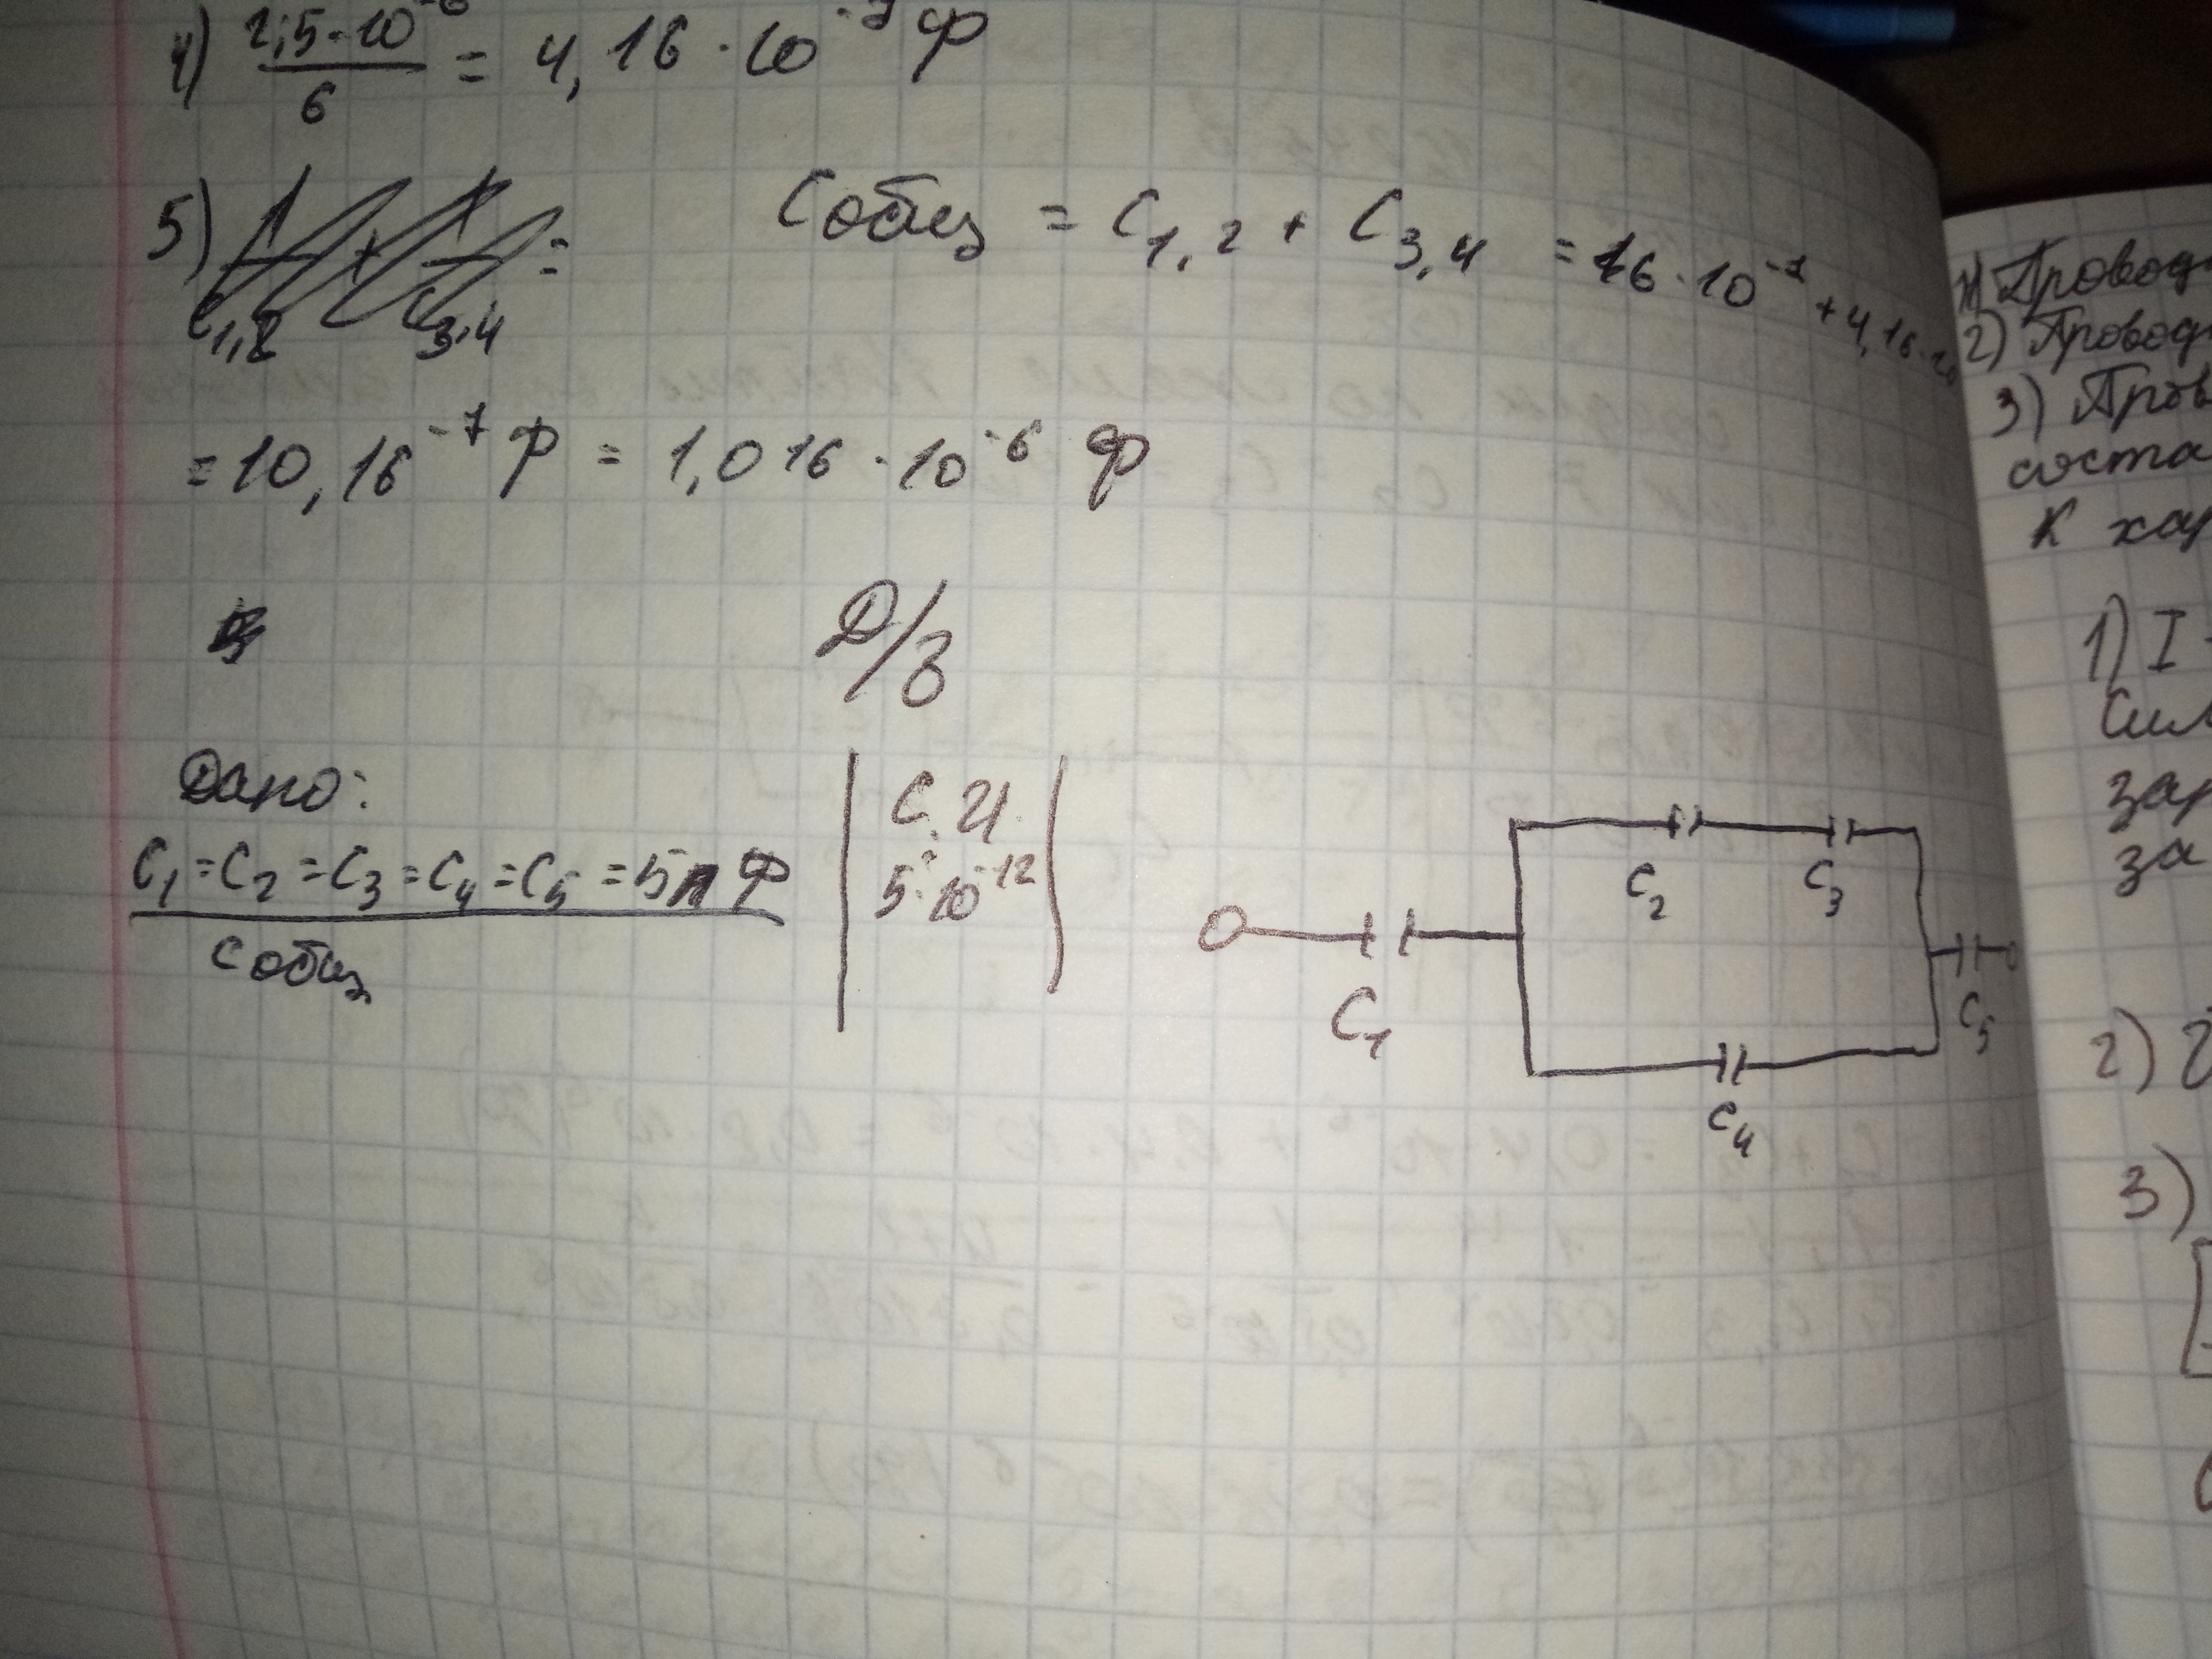 4) 2,5·10⁻⁶ / 6 = 4,16·10⁻⁷ Ф
5) Cобщ = C1,2 + C3,4 = 6·10⁻⁷ + 4,16·10
= 10,16⁻⁷ Ф = 1,016·10⁻⁶ Ф
Д/З
Дано:
C₁=C₂=C₃=C₄=C₅=5пФ
Cобщ
С.И.
5·10⁻¹²
C₁
C₂
C₃
C₄
C₅
2) Провод
3) Пров
соста
к хар
1) I
Сил
зар
за
2)
3)